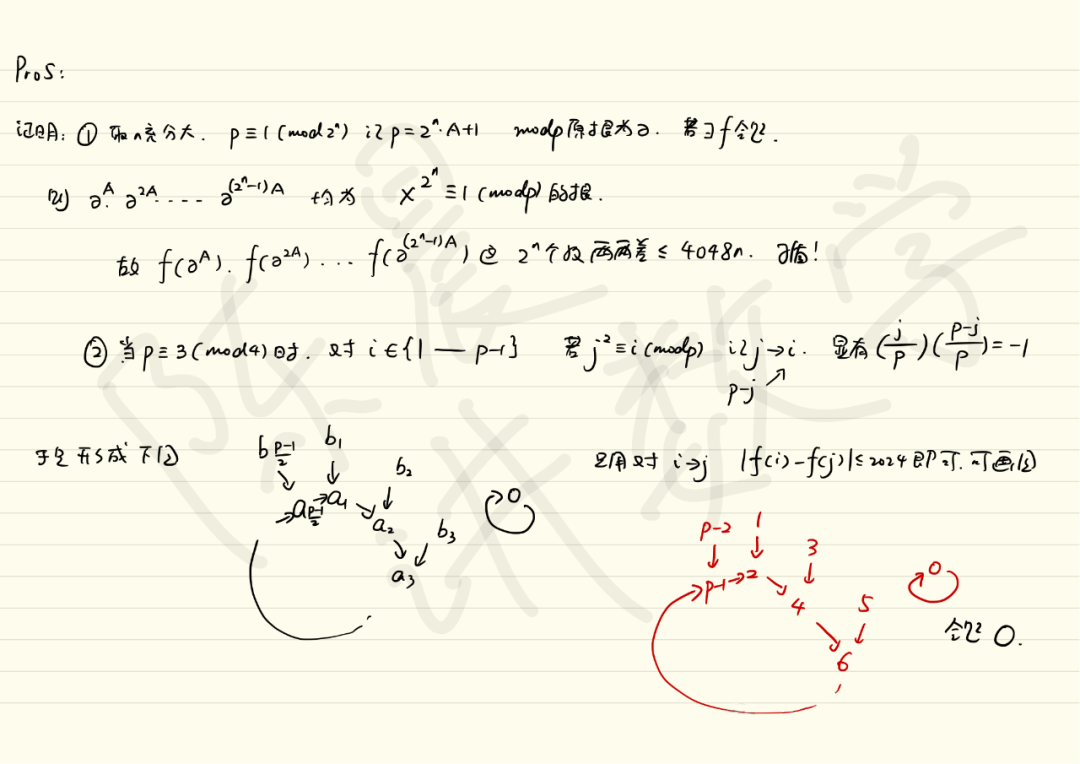 Pro5:
证明: ① 取n充分大. p≡1(mod2ⁿ) 记p=2ⁿ·A+1 modp原根为a. 若∃f合题.
则 a^A. a^{2A}.... a^{(2ⁿ-1)A} 均为 x^{2ⁿ}≡1(modp)的根.
故 f(a^A). f(a^{2A})... f(a^{(2ⁿ-1)A}) 这 2ⁿ个数两两差≤4048n. 矛盾!
② 当p≡3(mod4)时. 对 i∈{1—p-1} 若j²≡i(modp) 记j→i. 显有(j/p)((p-j)/p)=-1
p-j↗
于是形成下图
b_{(p-1)/2} b₁ b₂ b₃
a_{(p-1)/2}→a₁ a₂ a₃ 0
只用对 i→j |f(i)-f(j)|≤2024即可.可画图
p-2 1 3 5
p-1→2 4 6 0
合题 0.